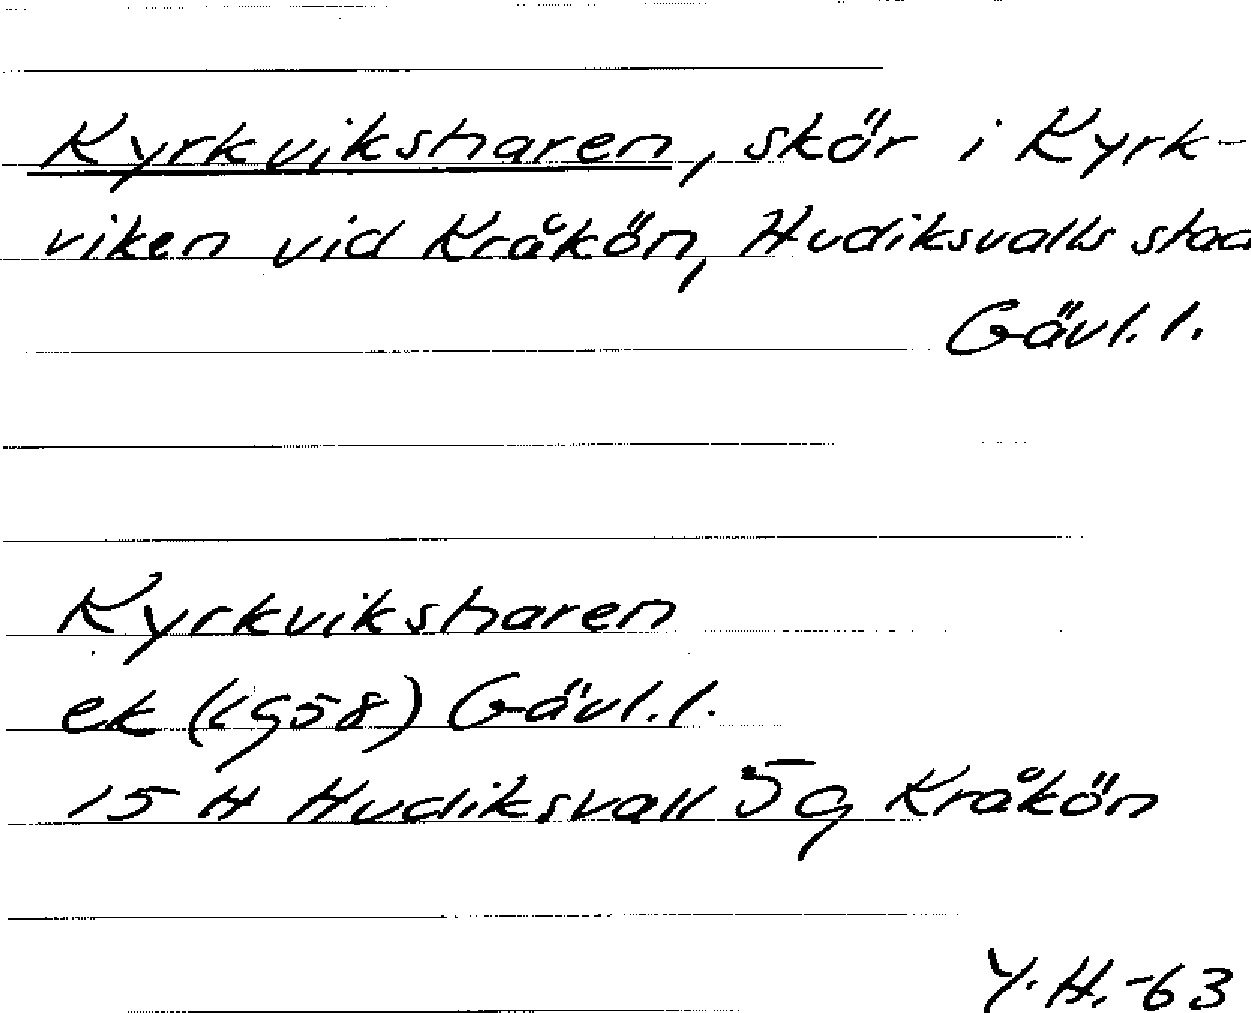 Kyrkviksharen, skär i Kyrk-
viken vid Kråkön, Hudiksvalls stad
Gävl.l.
Kyrkviksharen
ek (1958) Gävl.l.
15 H Hudiksvall 5g Kråkön
Y.H.-63